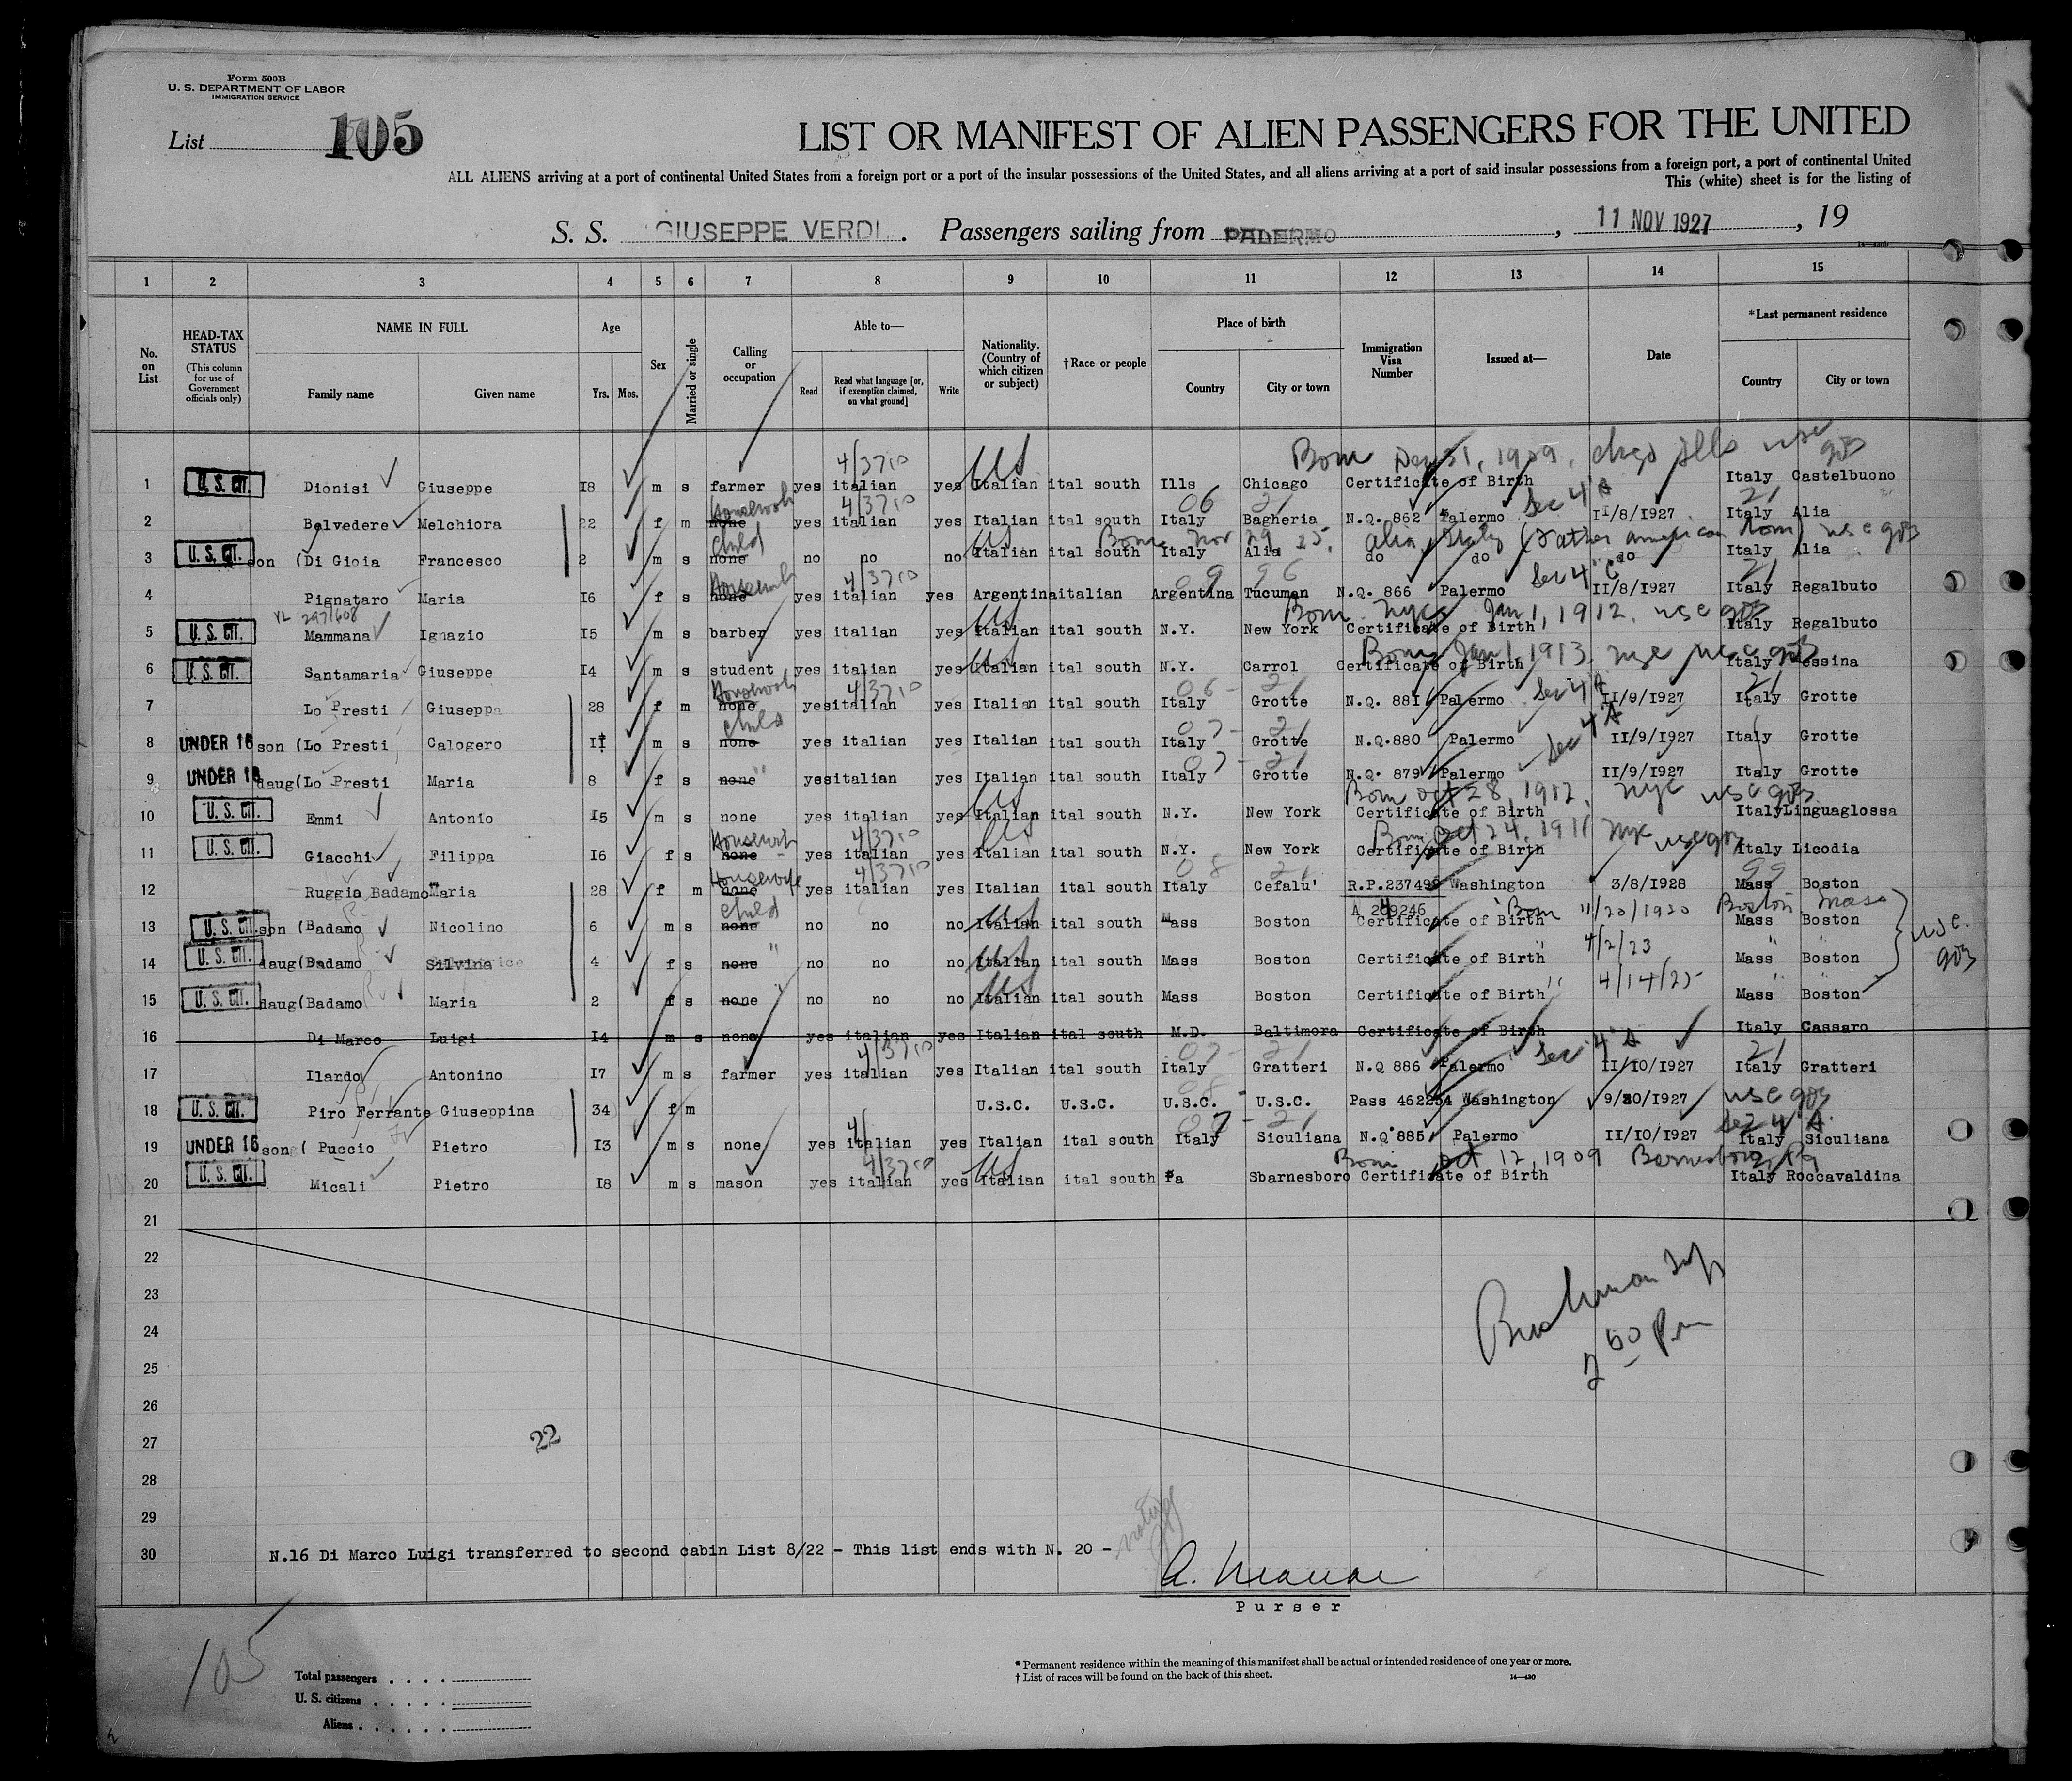 Form 500B
U. S. DEPARTMENT OF LABOR
IMMIGRATION SERVICE
List 105
LIST OR MANIFEST OF ALIEN PASSENGERS FOR THE UNITED
ALL ALIENS arriving at a port of continental United States from a foreign port or a port of the insular possessions of the United States, and all aliens arriving at a port of said insular possessions from a foreign port, a port of continental United
This (white) sheet is for the listing of
S. S. GIUSEPPE VERDI. Passengers sailing from PALERMO, 11 NOV 1927, 19
1 2 3 4 5 6 7 8 9 10 11 12 13 14 15
No. on List HEAD-TAX STATUS (This column for use of Government officials only) NAME IN FULL Family name Given name Age Yrs. Mos. Sex Married or single Calling or occupation Able to— Read Read what language [or, if exemption claimed, on what ground] Write Nationality. (Country of which citizen or subject) †Race or people Place of birth Country City or town Immigration Visa Number Issued at— Date *Last permanent residence Country City or town
Born Dec 31, 1909, chgo Ills usc
1 U.S. CIT. Dionisi Giuseppe 18 m s farmer yes italian yes Italian ital south Ills Chicago Certificate of Birth Italy Castelbuono
Housework 4/3710 06 21 Sec 4 A 21
2 Belvedere Melchiora 22 f m none yes italian yes Italian ital south Italy Bagheria N.Q. 862 Palermo 11/8/1927 Italy Alia
Child US Born Nov 29 25, Alia, Italy (Father american born) usc
3 U.S. CIT. son (Di Gioia Francesco 2 m s none no no no Italian ital south Italy Alia do do do Italy Alia
Housework 4/3710 Sec 4 "C" 21
4 Pignataro Maria 16 f s none yes italian yes Argentina italian Argentina Tucuman N.Q. 866 Palermo 11/8/1927 Italy Regalbuto
VL 297/608 US Born nyc Jan 1, 1912, usc
5 U.S. CIT. Mammana Ignazio 15 m s barber yes italian yes Italian ital south N.Y. New York Certificate of Birth Italy Regalbuto
US Born Jan 1, 1913, nyc usc
6 U.S. CIT. Santamaria Giuseppe 14 m s student yes italian yes Italian ital south N.Y. Carrol Certificate of Birth Italy Messina
Housework 4/3710 06 - 21 Sec 4 A 21
7 Lo Presti Giuseppa 28 f m none yes italian yes Italian ital south Italy Grotte N.Q. 881 Palermo 11/9/1927 Italy Grotte
child 07 - 21 Sec 4 A
8 UNDER 16 son (Lo Presti Calogero 11 m s none yes italian yes Italian ital south Italy Grotte N.Q.880 Palermo 11/9/1927 Italy Grotte
07 - 21
9 UNDER 16 daug(Lo Presti Maria 8 f s none " yes italian yes Italian ital south Italy Grotte N.Q. 879 Palermo 11/9/1927 Italy Grotte
US Born Oct 28, 1912, nyc usc
10 U.S. CIT. Emmi Antonio 15 m s none yes italian yes Italian ital south N.Y. New York Certificate of Birth Italy Linguaglossa
Housework 4/3710 US Born Oct 24, 1911 nyc usc
11 U.S. CIT. Giacchi Filippa 16 f s none yes italian yes Italian ital south N.Y. New York Certificate of Birth Italy Licodia
Housewife 4/3710 08 21 99
12 Ruggio Badamo Maria 28 f m none yes italian yes Italian ital south Italy Cefalu' R.P.237496 Washington 3/8/1928 Mass Boston
child US A 209246 Born 11/20/1920 Boston Mass
13 U.S. CIT. son (Badamo Nicolino 6 m s none no no no Italian ital south Mass Boston Certificate of Birth Mass Boston
US " 4/2/23 usc.
14 U.S. CIT. daug(Badamo Silvina 4 f s none " no no no Italian ital south Mass Boston Certificate of Birth Mass Boston
US " 4/14/25
15 U.S. CIT. daug(Badamo Maria 2 f s none " no no no Italian ital south Mass Boston Certificate of Birth Mass Boston
16 Di Marco Luigi 14 m s none yes italian yes Italian ital south M.D. Baltimora Certificate of Birth Italy Cassaro
4/3710 07 - 21 Sec 4 A 21
17 Ilardo Antonino 17 m s farmer yes italian yes Italian ital south Italy Gratteri N.Q 886 Palermo 11/10/1927 Italy Gratteri
18 U.S. CIT. Piro Ferrante Giuseppina 34 f m U.S.C. U.S.C. U.S.C. U.S.C. Pass 462254 Washington 9/30/1927 usc
07 - 21 Sec 4 A
19 UNDER 16 son ( Puccio Pietro 13 m s none yes italian yes Italian ital south Italy Siculiana N.Q 885 Palermo 11/10/1927 Italy Siculiana
4/3710 US Born Oct 12, 1909 Barnesboro, Pa
20 U.S. CIT. Micali Pietro 18 m s mason yes italian yes Italian ital south Pa Sbarnesboro Certificate of Birth Italy Roccavaldina
21
22
23
24
2 50 Pm
25
26
27
22
28
29
30 N.16 Di Marco Luigi transferred to second cabin List 8/22 - This list ends with N. 20 -
Purser
105
Total passengers
U. S. citizens
Aliens
* Permanent residence within the meaning of this manifest shall be actual or intended residence of one year or more.
† List of races will be found on the back of this sheet.
14—430